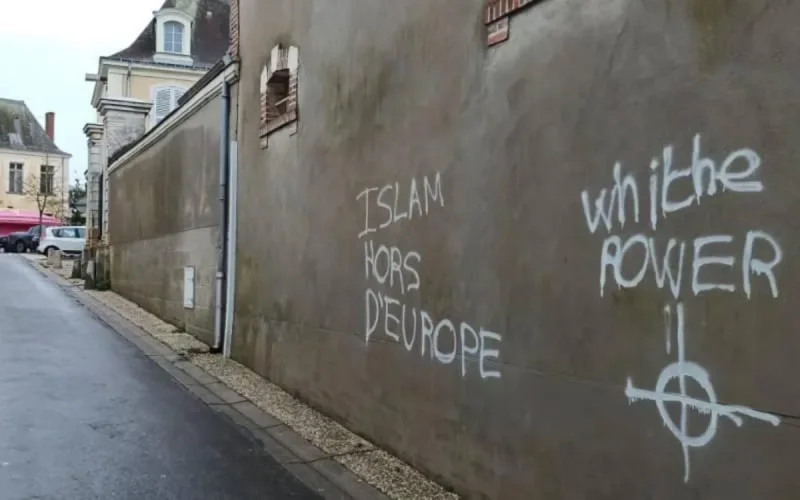 ISLAM
HORS
D'EUROPE
whithe
POWER